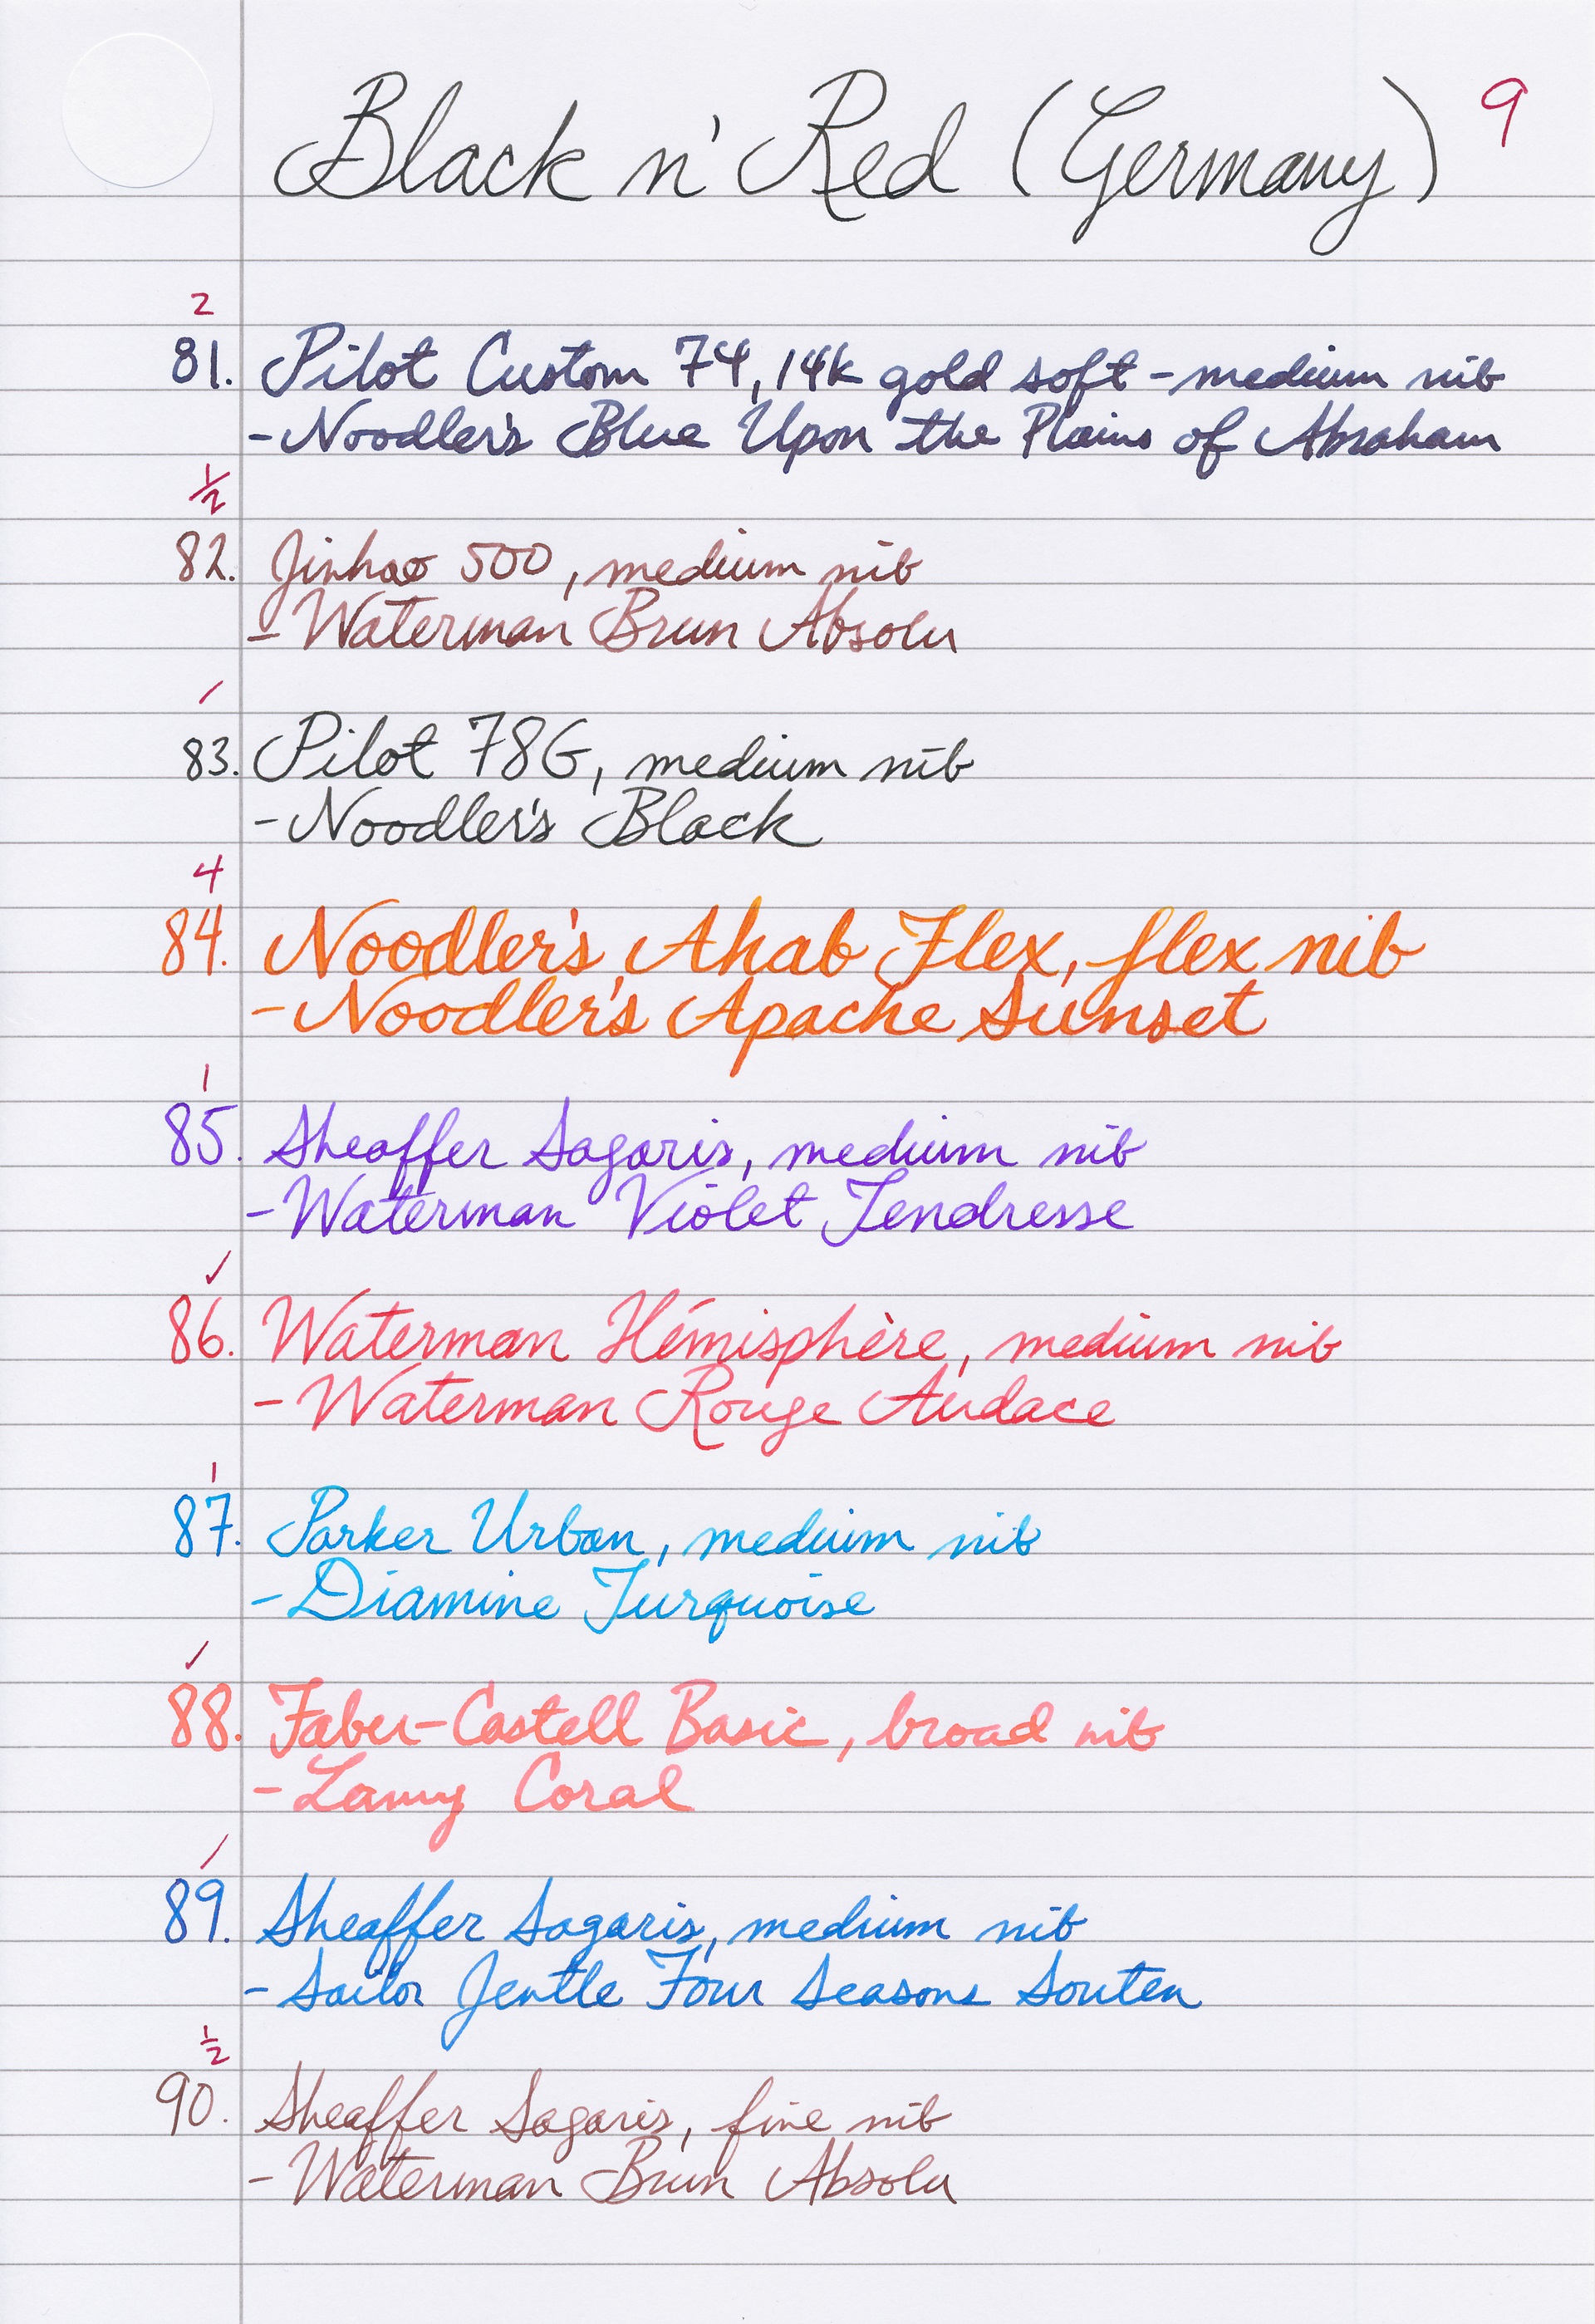 Black n' Red (Germany) 9
2
81. Pilot Custom 74, 14k gold soft-medium nib
- Noodler's Blue Upon the Plains of Abraham
1/2
82. Jinhao 500, medium nib
- Waterman Brun Absolu
/
83. Pilot 78G, medium nib
- Noodler's Black
4
84. Noodler's Ahab Flex, flex nib
- Noodler's Apache Sunset
1
85. Sheaffer Sagaris, medium nib
- Waterman Violet Tendresse
✓
86. Waterman Hémisphère, medium nib
- Waterman Rouge Audace
1
87. Parker Urban, medium nib
- Diamine Turquoise
✓
88. Faber-Castell Basic, broad nib
- Lamy Coral
/
89. Sheaffer Sagaris, medium nib
- Sailor Jentle Four Seasons Souten
1/2
90. Sheaffer Sagaris, fine nib
- Waterman Brun Absolu